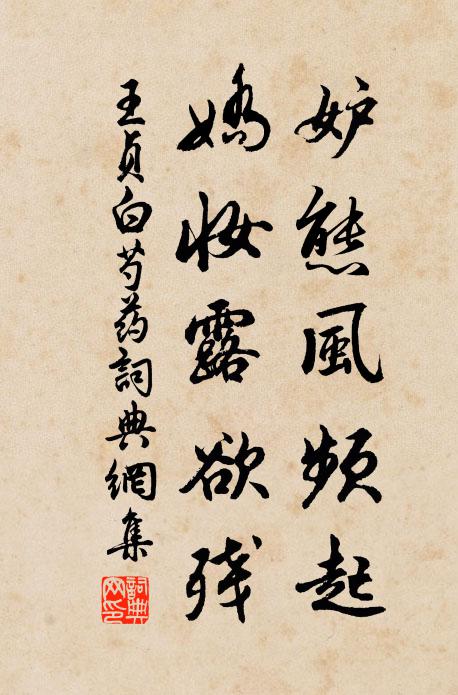 妒態風頻起
嬌妝露欲残
王貞白芍药詞典網集
詞典网印